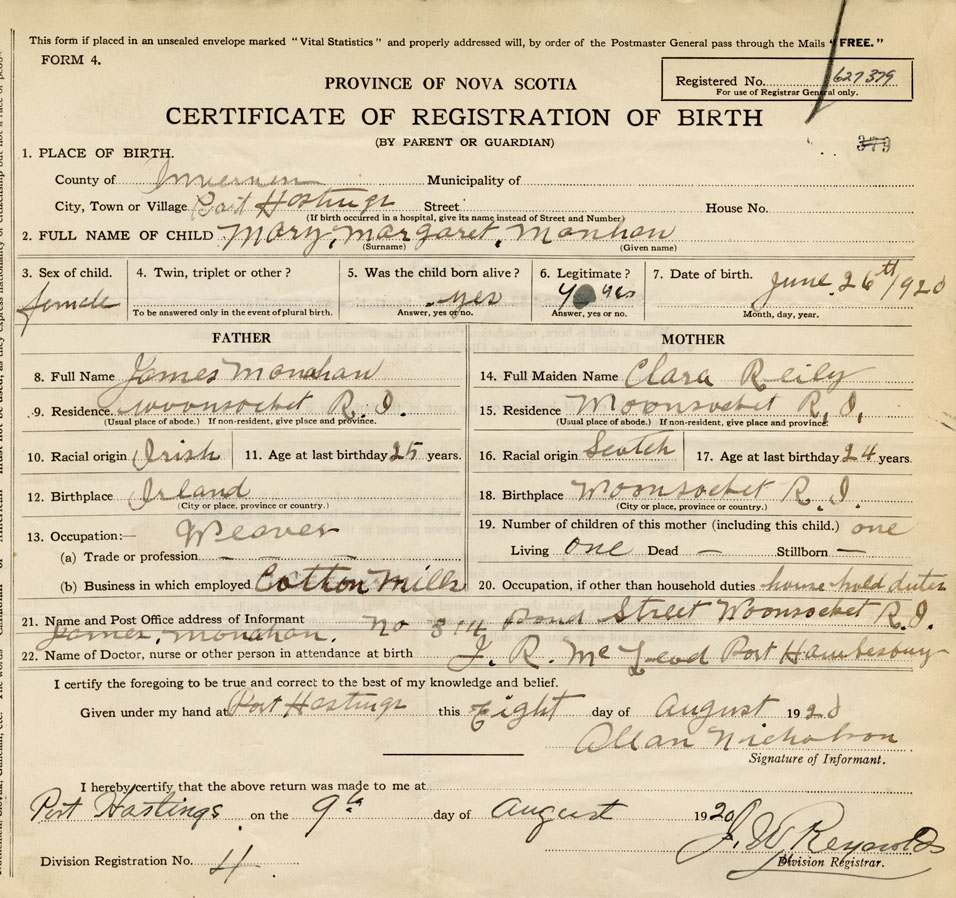 This form if placed in an unsealed envelope marked "Vital Statistics" and properly addressed will, by order of the Postmaster General pass through the Mails "FREE."
FORM 4.
PROVINCE OF NOVA SCOTIA
Registered No. 627379
For use of Registrar General only.
CERTIFICATE OF REGISTRATION OF BIRTH
(BY PARENT OR GUARDIAN)
373
1. PLACE OF BIRTH.
County of Inverness Municipality of
City, Town or Village Port Hastings Street House No.
(If birth occurred in a hospital, give its name instead of Street and Number)
2. FULL NAME OF CHILD Mary, Margaret, Monhan
(Surname) (Given name)
3. Sex of child. 4. Twin, triplet or other? 5. Was the child born alive? 6. Legitimate? 7. Date of birth. June 26th/1920
female yes yes
To be answered only in the event of plural birth. Answer, yes or no. Answer, yes or no. Month, day, year.
FATHER MOTHER
8. Full Name James Monahan 14. Full Maiden Name Clara Reily
9. Residence. Woonsocket R.I. 15. Residence Moonsocket R,I,
(Usual place of abode.) If non-resident, give place and province. (Usual place of abode.) If non-resident, give place and province.
10. Racial origin Irish 11. Age at last birthday 25 years. 16. Racial origin Scotch 17. Age at last birthday 24 years.
12. Birthplace Irland 18. Birthplace Woonsocket R.I.
(City or place, province or country.) (City or place, province or country.)
13. Occupation:— Weaver 19. Number of children of this mother (including this child.) one
(a) Trade or profession — — — Living one Dead — Stillborn —
(b) Business in which employed Cotton Mills 20. Occupation, if other than household duties house hold duties
21. Name and Post Office address of Informant
James, Monahan. No 314 Pond Street Woonsocket R.I.
22. Name of Doctor, nurse or other person in attendance at birth J. R. McLeod Port Hawkesbury
I certify the foregoing to be true and correct to the best of my knowledge and belief.
Given under my hand at Port Hastings this Eight day of August 1920
Allan Nicholson
Signature of Informant.
I hereby certify that the above return was made to me at
Port Hastings on the 9th day of August 1920
J. W. Reynolds
Division Registration No. 4 Division Registrar.